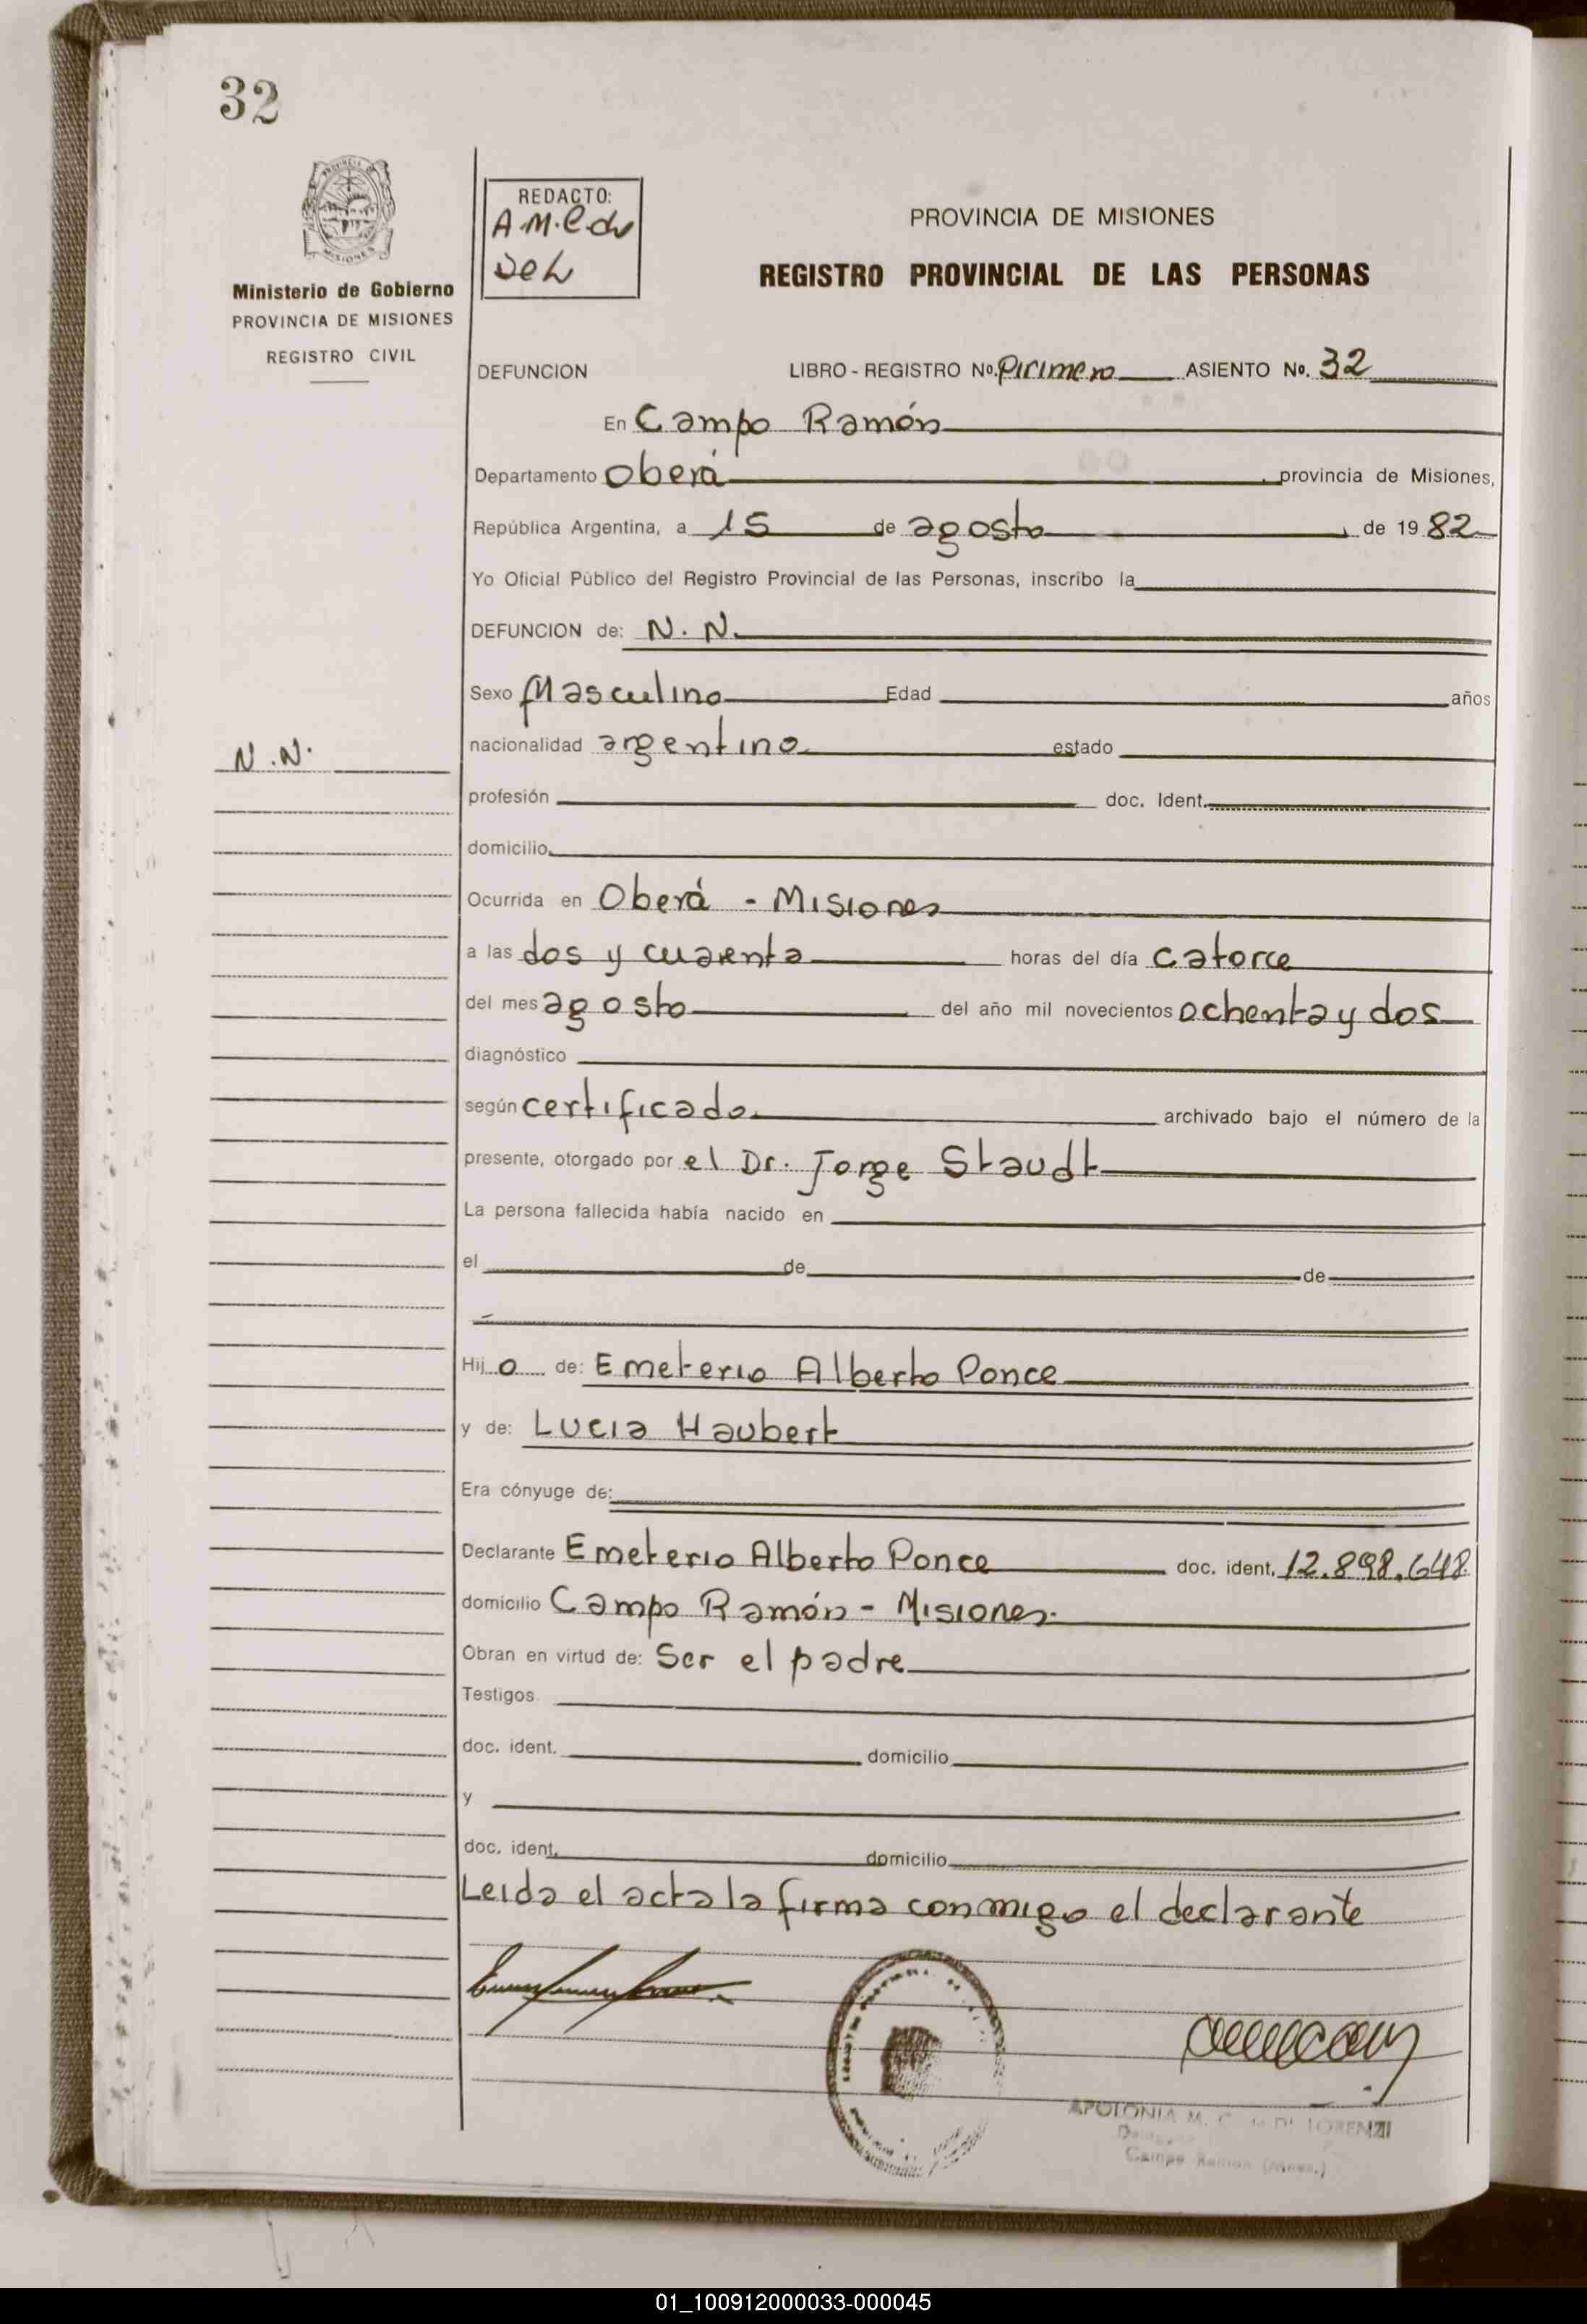 32
Ministerio de Gobierno
PROVINCIA DE MISIONES
REGISTRO CIVIL
REDACTO:
A.M.C. de
PROVINCIA DE MISIONES
REGISTRO PROVINCIAL DE LAS PERSONAS
DEFUNCION LIBRO - REGISTRO Nº. Pirimero ASIENTO Nº. 32
En Campo Ramón
Departamento Oberá provincia de Misiones,
República Argentina, a 15 de agosto de 1982
Yo Oficial Público del Registro Provincial de las Personas, inscribo la
DEFUNCION de: N. N.
Sexo Masculino Edad años
N. N.
nacionalidad argentino estado
profesión doc. Ident.
domicilio
Ocurrida en Oberá - Misiones
a las dos y cuarenta horas del día catorce
del mes agosto del año mil novecientos ochenta y dos
diagnóstico
según certificado archivado bajo el número de la
presente, otorgado por el Dr. Jorge Staudt
La persona fallecida había nacido en
el de de
Hijo de: Emeterio Alberto Ponce
y de: Lucia Haubert
Era cónyuge de:
Declarante Emeterio Alberto Ponce doc. ident. 12.898.648
domicilio Campo Ramón - Misiones.
Obran en virtud de: Ser el padre
Testigos
doc. ident. domicilio
y
doc. ident. domicilio
Leida el acta la firma conmigo el declarante
APOLONIA M. C. de DI LORENZI
Campo Ramon (Mnes.)
01_100912000033-000045